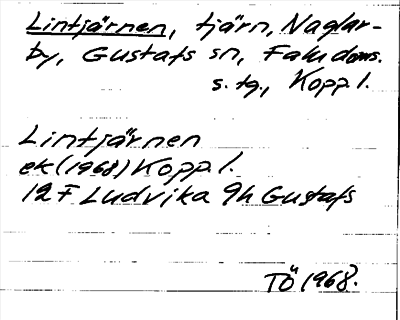 Lintjärnen, tjärn, Naglar-
by, Gustafs sn, Falu doms.
s. tg., Kopp l.
Lintjärnen
ek (1968) Kopp l.
12 F Ludvika 9h Gustafs
TÖ 1968.